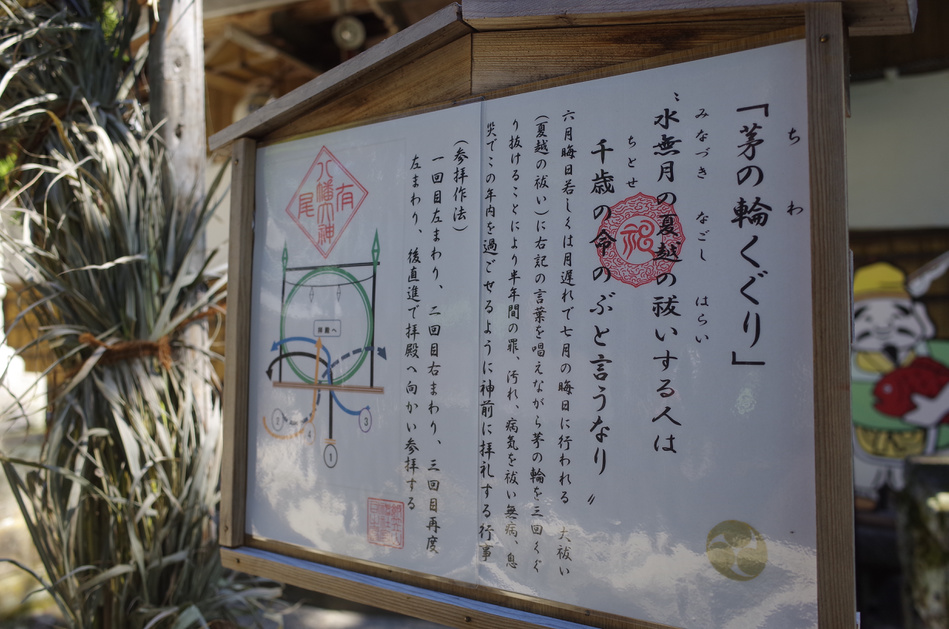 『茅の輪くぐり』
ちわ
みなづき　なごし　はらい
〝水無月の夏越の祓いする人は
ちとせ
千歳の命のぶと言うなり〃
六月晦日若しくは月遅れで七月の晦日に行われる　大祓い
(夏越の祓い)に右記の言葉を唱えながら茅の輪を三回くぐ
り抜けることにより半年間の罪、汚れ、病気を祓い無病、息
災でこの年内を過ごせるように神前に拝礼する行事
(参拝作法)
一回目左まわり、二回目右まわり、三回目再度
左まわり、後直進で拝殿へ向かい参拝する
有
八幡大神
尾
拝殿へ
①
②
③